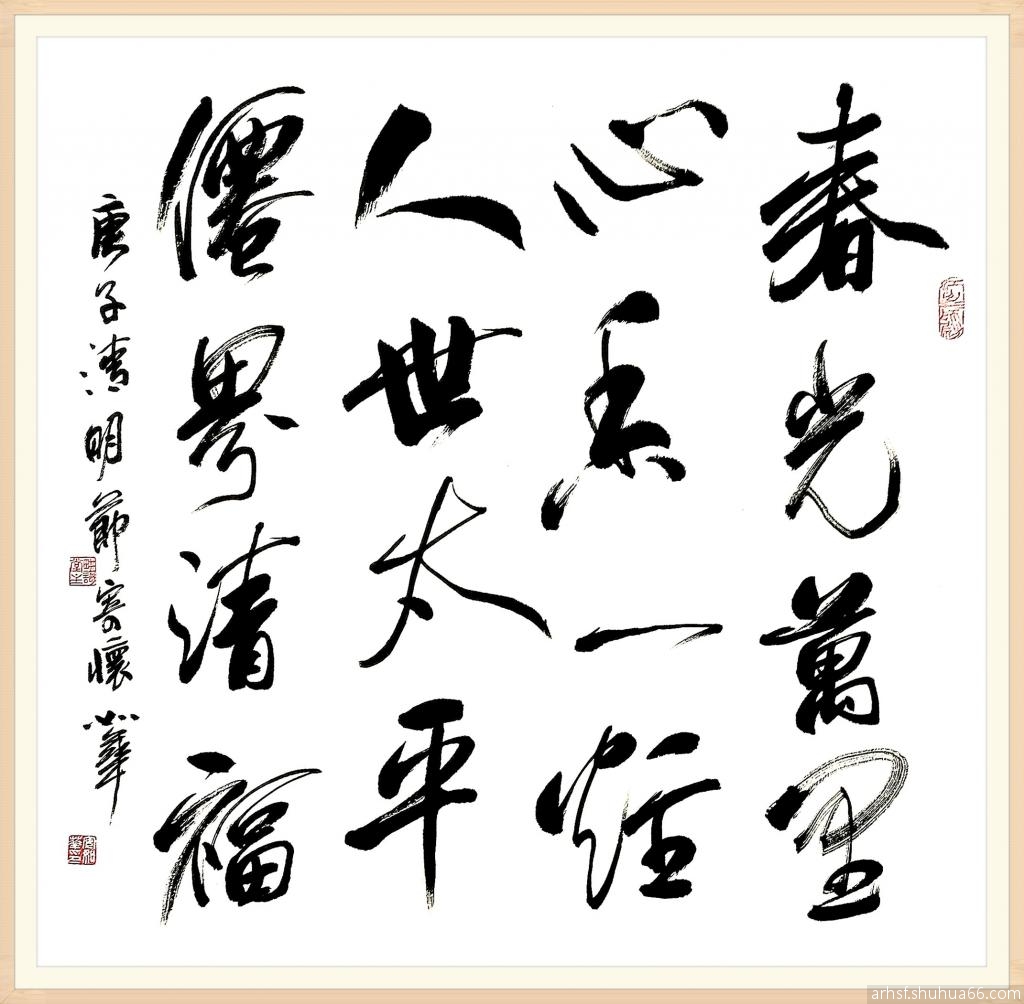 春光萬里
心香一炷
人世太平
僊界清福
庚子清明節寄懷
arhsf.shuhua66.com